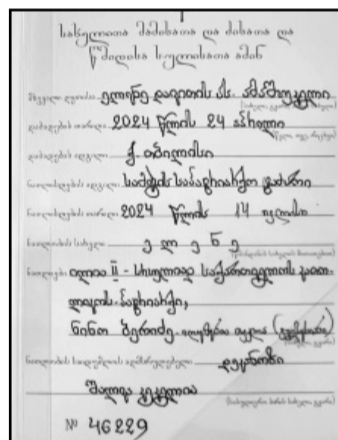 სახელითა მამისათა და ძისათა და
წმიდისა სულისათა ამინ
ელენე დავითის ას.
დაბადების თარიღი 2024 წლის 24 აპრილი
დაბადების ადგილი ქ. თბილისი
ნათლობის ადგილი სამების საპატრიარქო ტაძარი
ნათლობის თარიღი 2024 წლის 14 ივლისი
ნათლობის სახელი ე ლ ე ნ ე
ნათლიები ილია II - სრულიად საქართველოს კათო-
ლიკოს-პატრიარქი,
ნინო ბერიძე.
ნათლობის საიდუმლოს აღმსრულებელი დეკანოზი
შალვა კეკელია
№ 46229